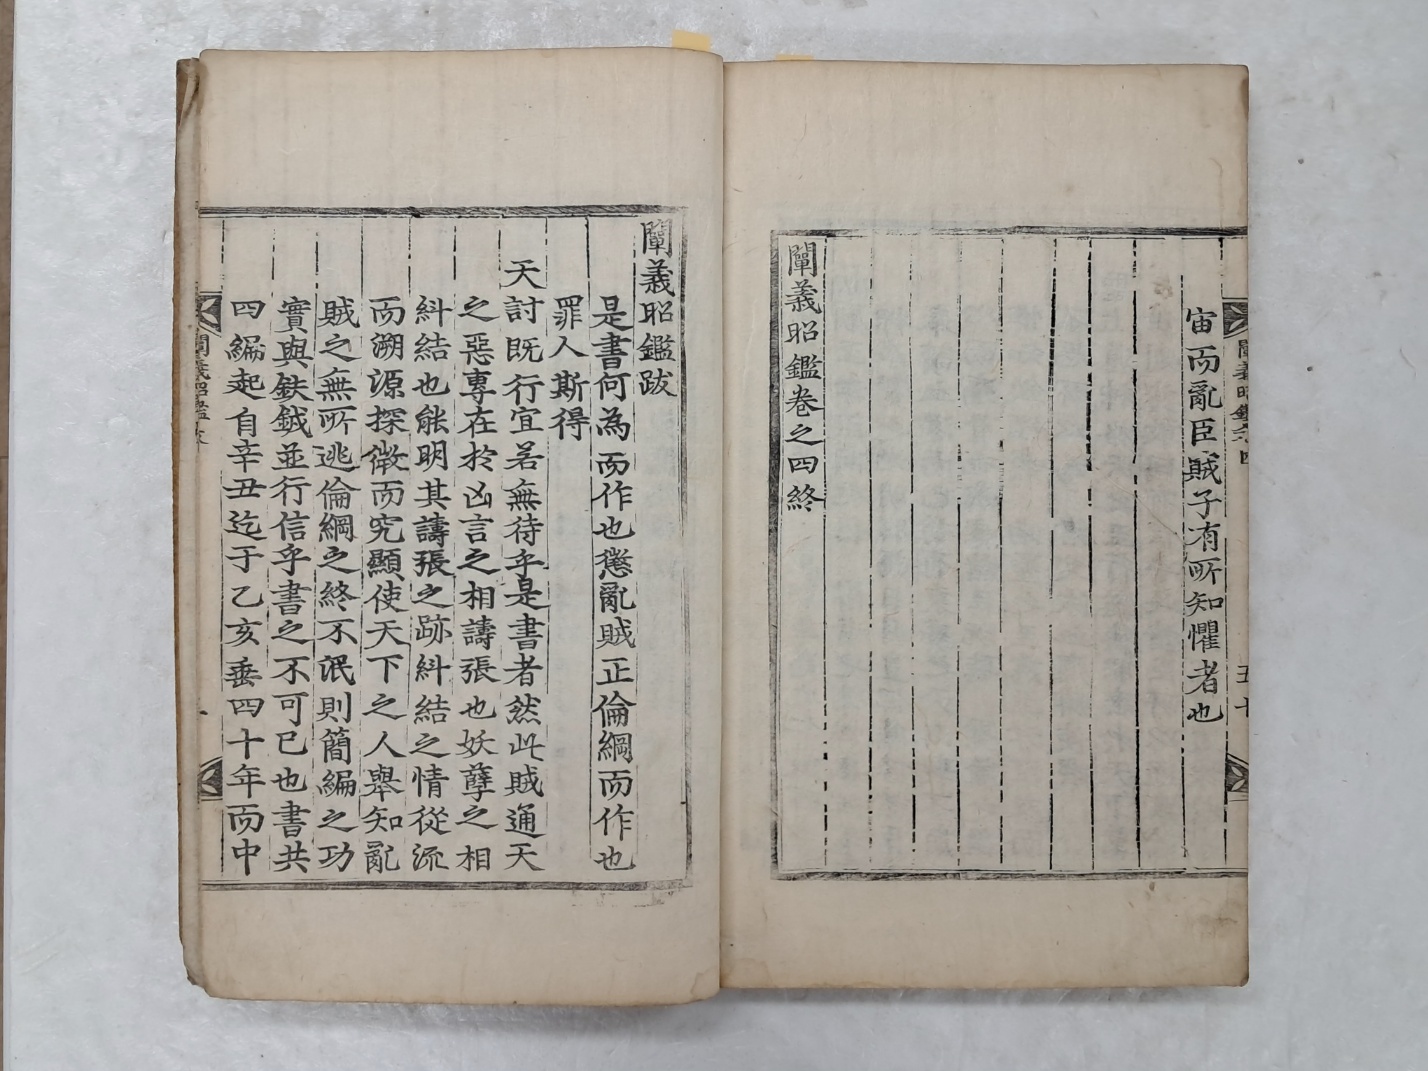 宙而亂臣賊子有所知懼者也
闡義昭鑑卷之四終
闡義昭鑑跋
是書何為而作也懲亂賊正倫綱而作也
罪人斯得
天討既行宜若無待乎是書者然此賊通天
之惡專在於凶言之相譸張也妖孼之相
糾結也能明其譸張之跡糾結之情從流
而溯源探微而究顯使天下之人舉知亂
賊之無所逃倫綱之終不泯則簡編之功
實與鈇鉞並行信乎書之不可已也書共
四編起自辛丑迄于乙亥垂四十年而中
闡義昭鑑跋